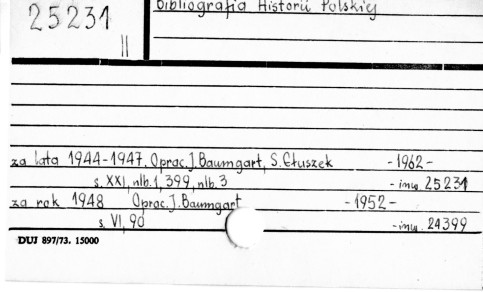 Bibliografia Historii Polskiej
25231
II
za lata 1944-1947. Oprac. J. Baumgart, S. Głuszek -1962-
s. XXI, nlb. 1, 399, nlb. 3 - inw. 25231
za rok 1948 Oprac. J. Baumgart -1952-
s. VI, 90 - inw. 24399
DUJ 897/73. 15000